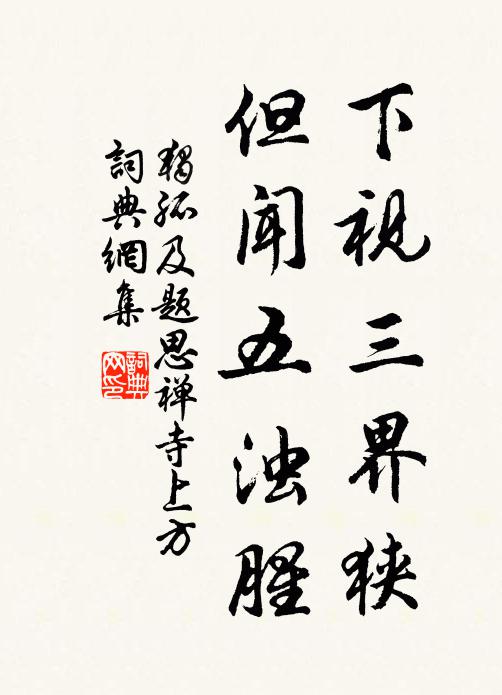 下视三界狭
但闻五浊腥
独孤及题思禅寺上方
詞典網集
詞典网印